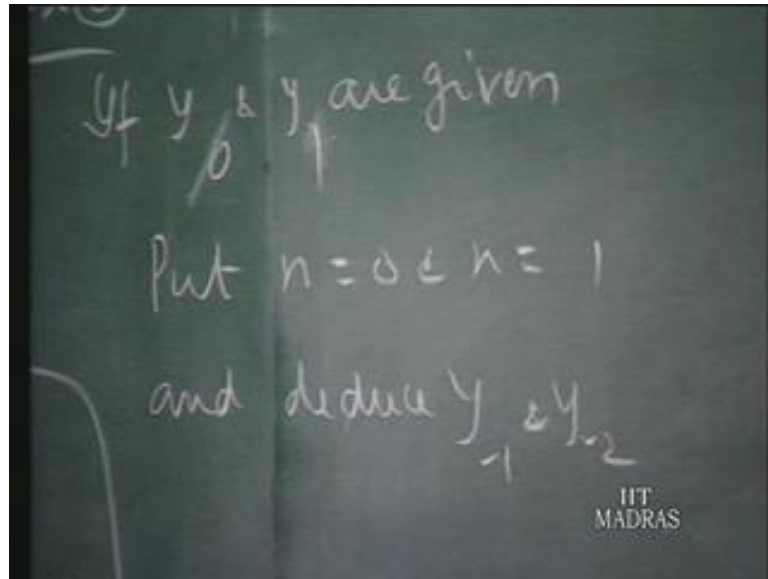 If y₀ & y₁ are given
Put n = 0 & n = 1
and deduce y₋₁ & y₋₂
IIT
MADRAS